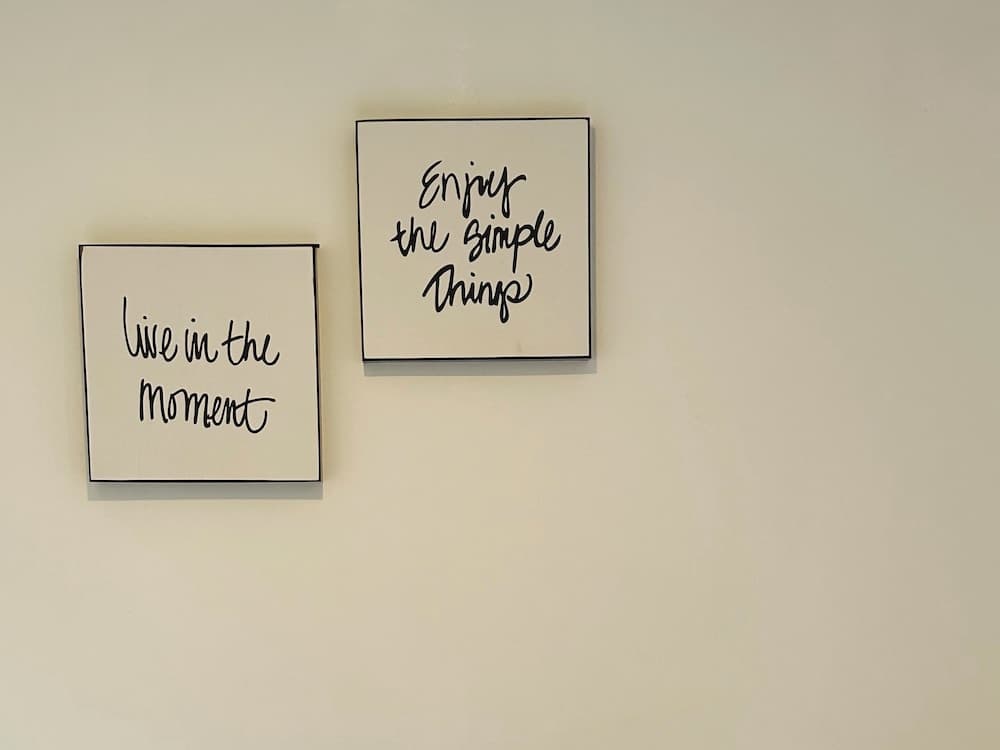 Live in the
Moment
Enjoy
the simple
Things